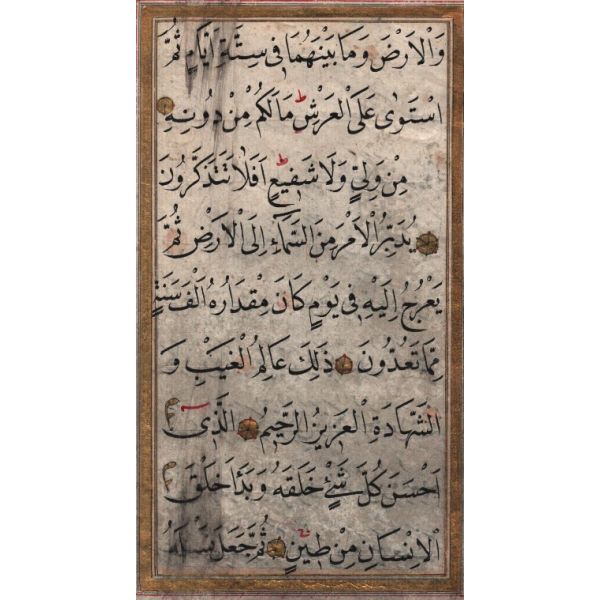 وَالْاَرْضَ وَمَا بَيْنَهُمَا فٖى سِتَّةِ اَيَّامٍ ثُمَّ
اسْتَوٰى عَلَى الْعَرْشِ ط مَا لَكُمْ مِنْ دُونِهٖ
مِنْ وَلِىٍّ وَلَا شَفٖيعٍ ط اَفَلَا تَتَذَكَّرُونَ
يُدَبِّرُ الْاَمْرَ مِنَ السَّمَاءِ اِلَى الْاَرْضِ ثُمَّ
يَعْرُجُ اِلَيْهِ فٖى يَوْمٍ كَانَ مِقْدَارُهُ اَلْفَ سَنَةٍ
مِمَّا تَعُدُّونَ ذٰلِكَ عَالِمُ الْغَيْبِ وَ
الشَّهَادَةِ الْعَزٖيزُ الرَّحٖيمُ اَلَّذٖى
اَحْسَنَ كُلَّ شَىْءٍ خَلَقَهُ وَبَدَاَ خَلْقَ
الْاِنْسَانِ مِنْ طٖينٍ ثُمَّ جَعَلَ نَسْلَهُ